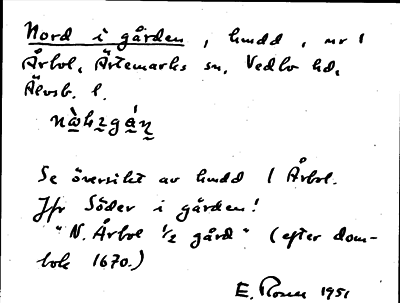 Nord i gården, hmdd, nr 1
Årbol, Ärtemarks sn, Vedbo hd,
Älvsb. l.
Se översikt av hmdd i Årbol.
Jfr Söder i gården!
"N. Årbol 1/2 gård" (efter dom-
bok 1670.)
E. Rosen 1951